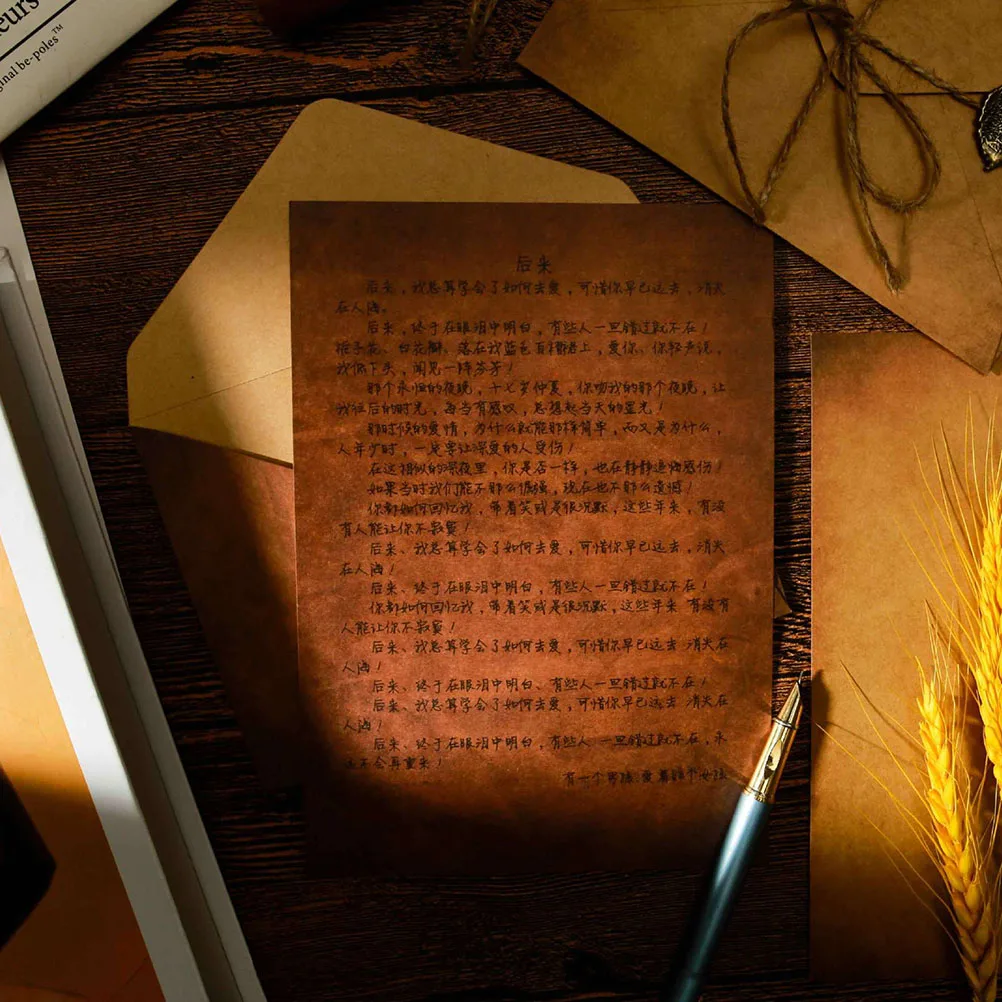 eurs
ginal be-poles™
后来
后来，我总算学会了如何去爱，可惜你早已远去，消失
在人海。
后来，终于在眼泪中明白，有些人一旦错过就不在！
栀子花、白花瓣、落在我蓝色百褶裙上，爱你、你轻声说，
我低下头，闻见一阵芬芳！
那个永恒的夜晚，十七岁仲夏，你吻我的那个夜晚，让
我往后的时光，每当有感叹，总想起当天的星光！
那时候的爱情，为什么就能那样简单，而又是为什么，
人年少时，一定要让深爱的人受伤！
在这相似的深夜里，你是否一样，也在静静追悔感伤！
如果当时我们能不那么倔强，现在也不那么遗憾！
你都如何回忆我，带着笑或是很沉默，这些年来，有没
有人能让你不寂寞！
后来、我总算学会了如何去爱，可惜你早已远去，消失
在人海！
后来、终于在眼泪中明白，有些人一旦错过就不在！
你都如何回忆我，带着笑或是很沉默，这些年来 有没有
人能让你不寂寞！
后来、我总算学会了如何去爱，可惜你早已远去 消失在
人海！
后来、终于在眼泪中明白、有些人一旦错过就不在！
后来、我总算学会了如何去爱，可惜你早已远去 消失在
人海！
后来、终于在眼泪中明白，有些人 一旦错过就不在，永
远不会再重来！
有一个男孩 爱着那个女孩